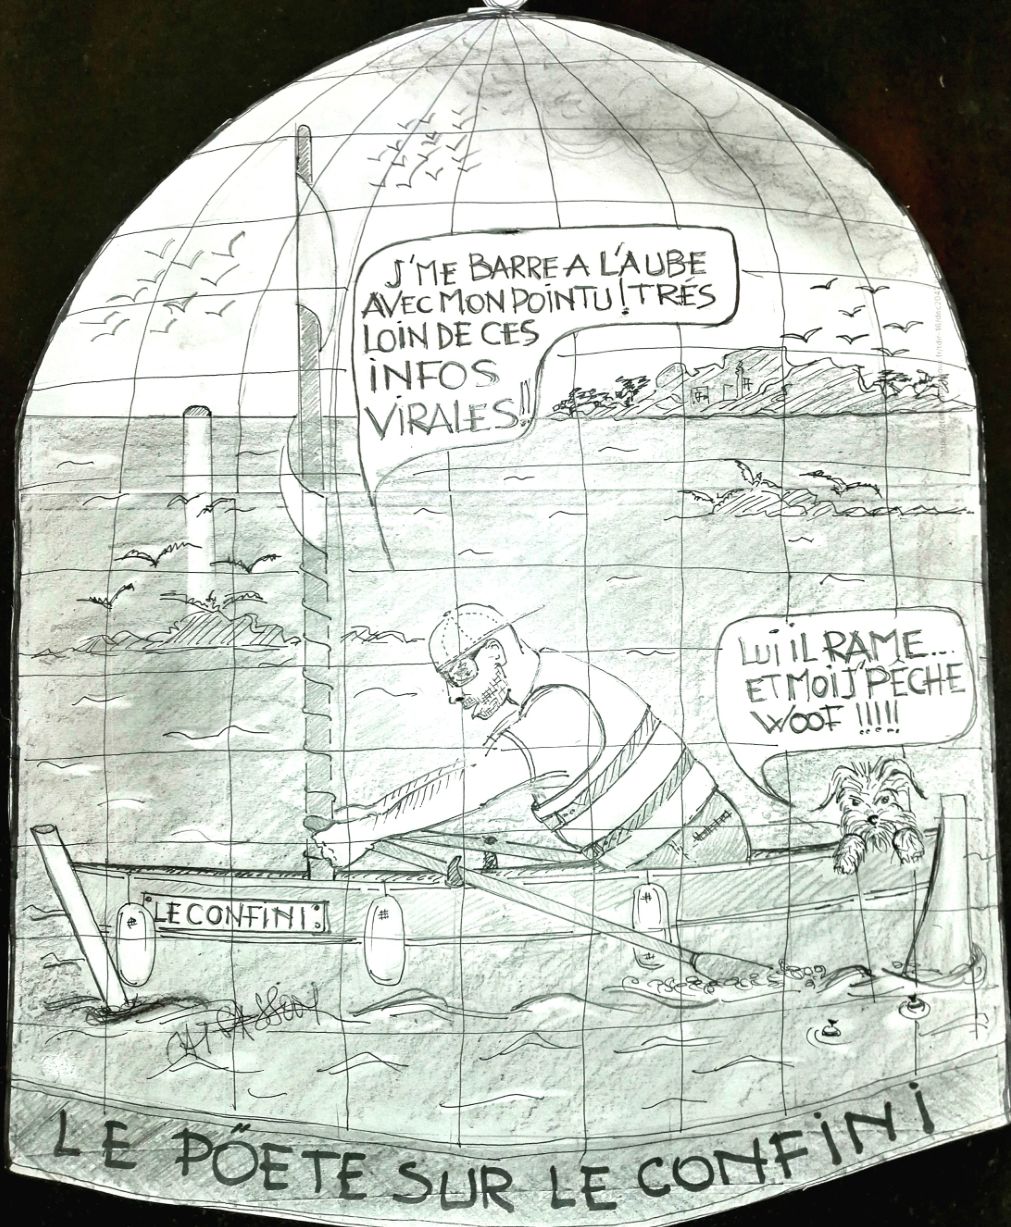 J'ME BARRE A L'AUBE
AVEC MON POINTU! TRÉS
LOIN DE CES
INFOS
VIRALES!!
LUI IL RAME...
ET MOI J'PÉCHE
WOOF !!!!!
LE CONFINI:
LE PÖETE SUR LE CONFINI